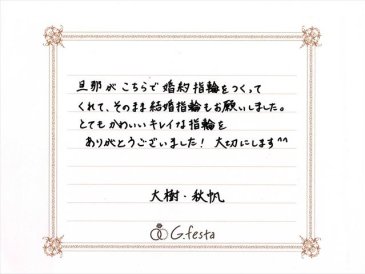 旦那がこちらで婚約指輪をつくって
くれて、そのまま結婚指輪もお願いしました。
とてもかわいいキレイな指輪を
ありがとうございました！大切にします^^
大樹・秋帆
G.festa